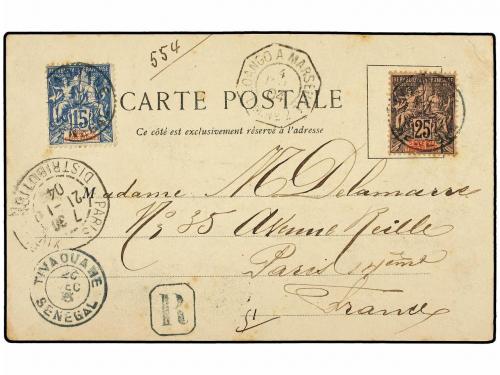 554
LOANGO A MARSEILLE
CARTE POSTALE
Ce côté est exclusivement réservé à l'adresse
15
25
Madame M. Delamarre
No. 35 Avenue Reille
Paris
France
PARIS
DISTRIBUTION
7 30
21 -1
04
TIVAOUANE
DEC
SENEGAL
R